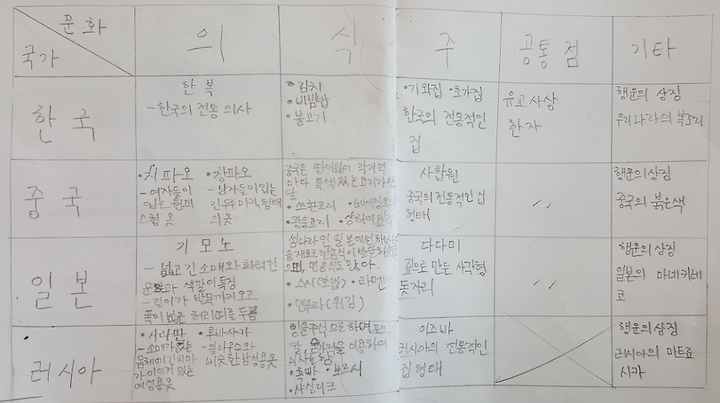 문화
국가
의
식
주
공통점
기타
한국
한복
- 한국의 전통 의사
• 김치
• 비빔밥
• 불고기
• 기와집 • 초가집
한국의 전통적인
집
유교사상
한자
행운의 상징
우리나라의 복조리
중국
• 치파오
- 여자들이
입는 원피
스형 옷
• 창파오
- 남자들이 입는
긴
의 옷
중국은 땅이 넓어 각 지역
마다 특색 있는 요리가
달
• 쓰촨요리
• 베이징요리
• 광둥요리
• 상하이요리
사합원
중국의 전통적인 집
형태
〃
행운의 상징
중국의 붉은색
일본
기모노
- 넓고 긴 소매와 화려한
무늬와 색깔이 특징
- 길이가 발목까지 오고
폭이 넓은 허리띠를 두름
섬나라인 일본에선 해산물
을 재료로 한 음식이 발달
며, 면음식도 많다.
• 스시(초밥)
• 라멘
• 덴푸라(튀김)
다다미
짚으로 만든 사각형
돗자리
〃
행운의 상징
일본의 마네키네
코
러시아
• 사라판
- 소매가 없는
몸체에 긴 치마
가 이어져 있는
여성용 옷
• 루바시카
- 블라우스와
비슷한 남성용 옷
이용하여
식사를 함
• 흑빵
• 보르시
• 샤실리크
이즈바
러시아의 전통적인
집 형태
행운의 상징
러시아의 마트료
시카